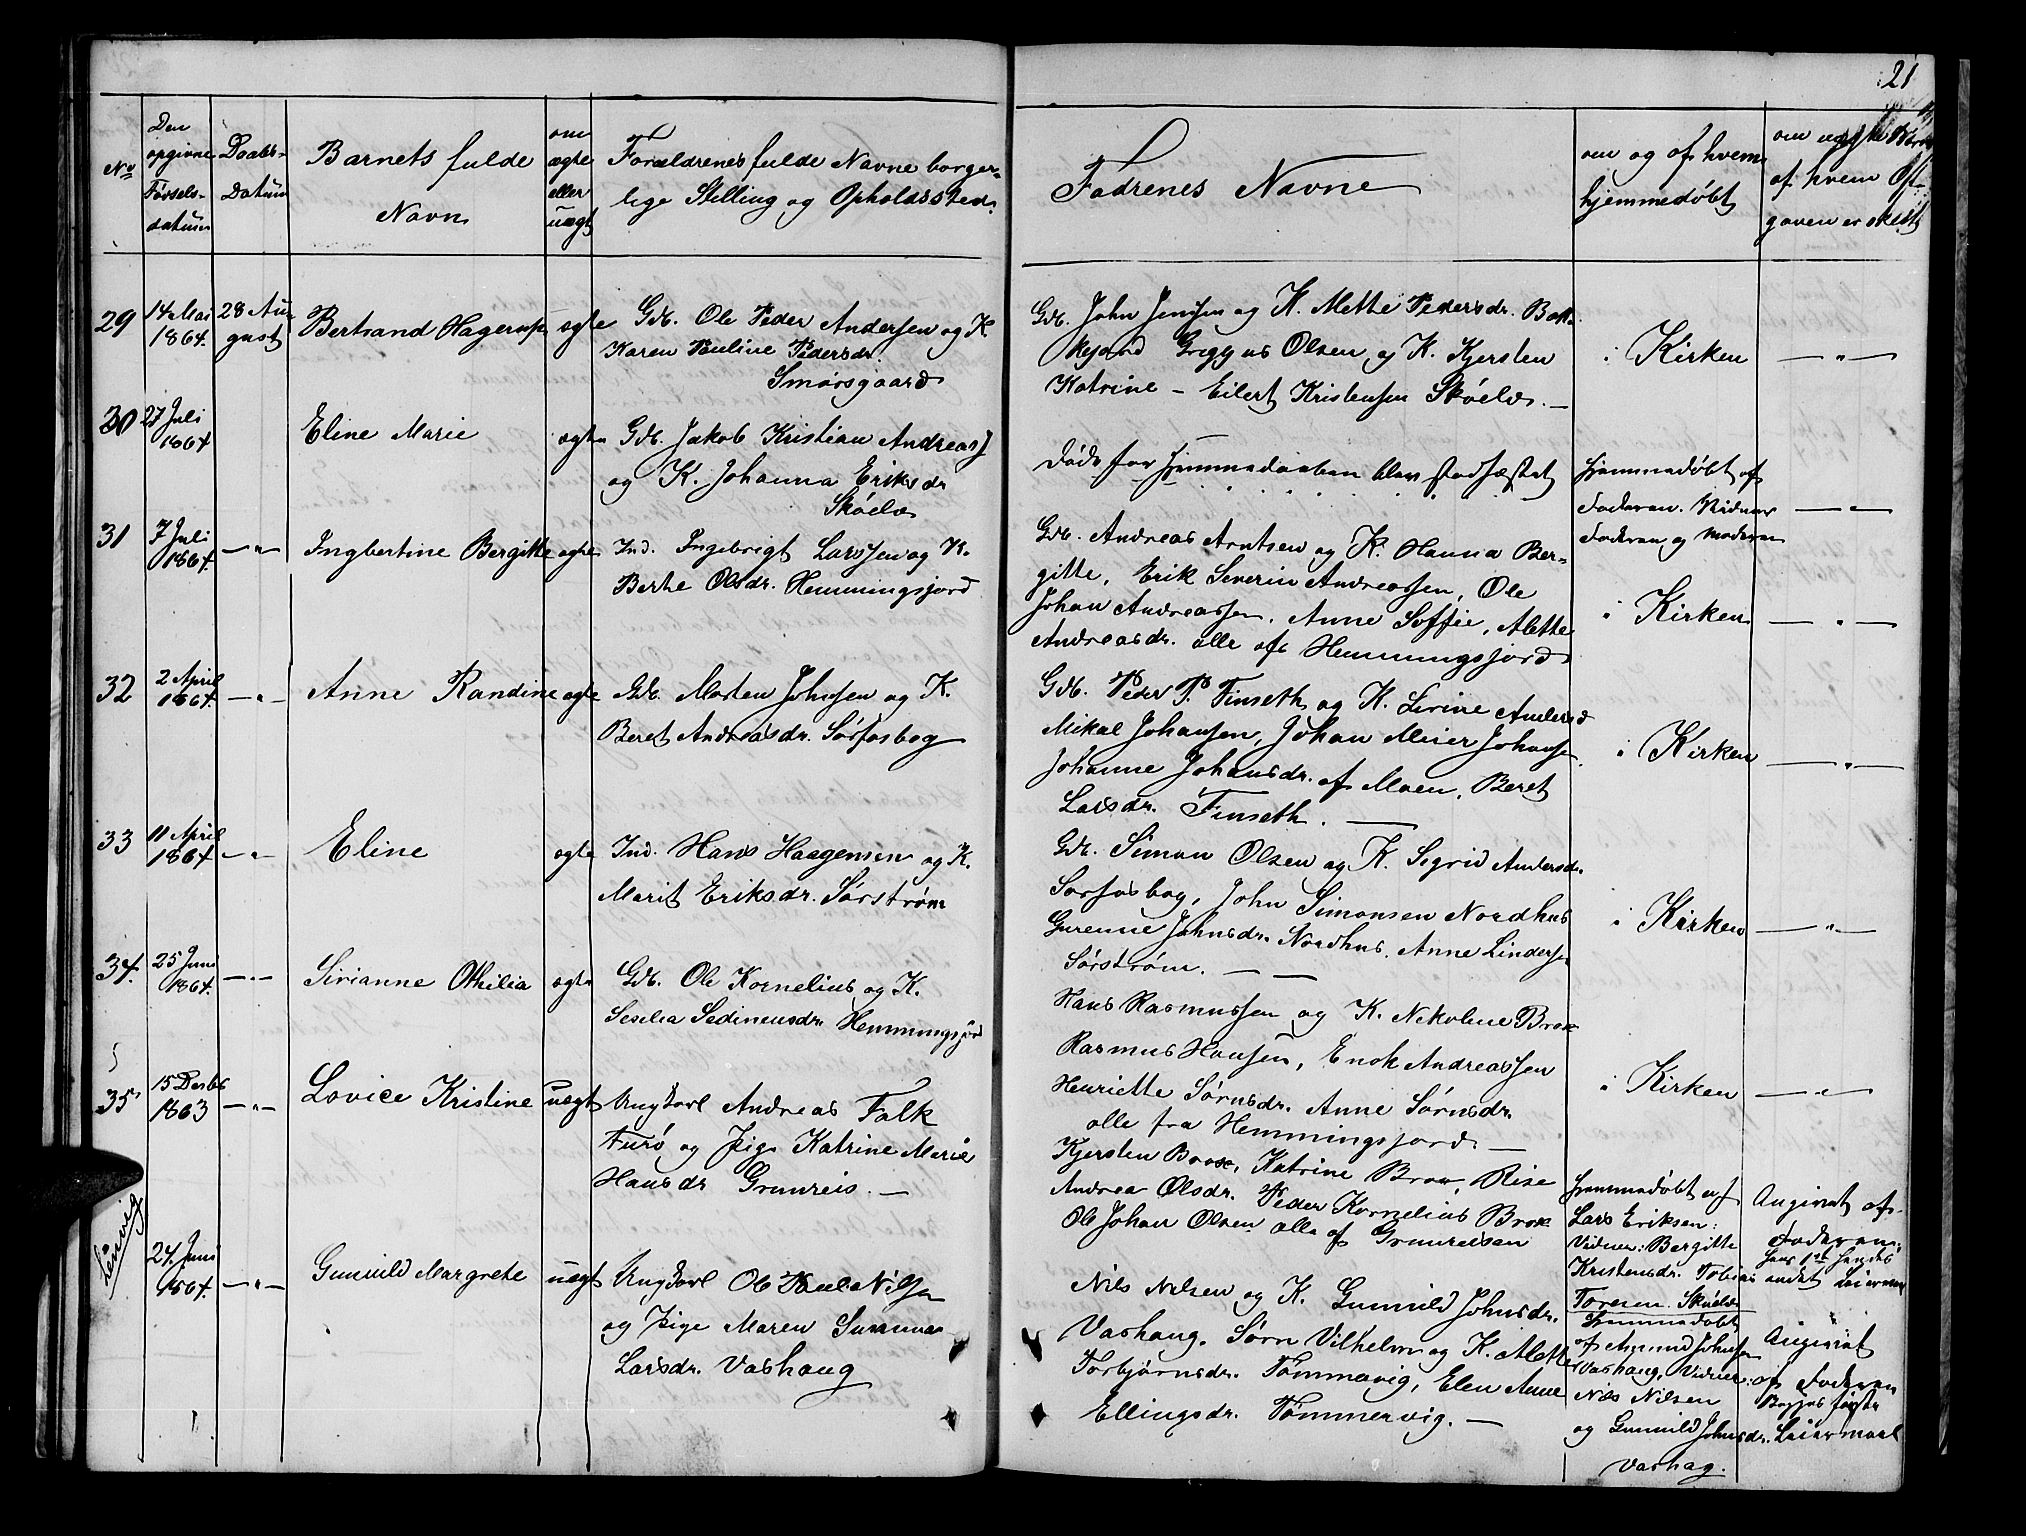 21
No
Den opgivne Fødsels-datum
Daabs-Datum
Barnets fulde Navn
om ægte eller uægt
Forældrenes fulde Navne borger-
lige Stilling og Opholdssted.
Fadrenes Navne
om og af hvem
hjemmedøbt
om uægte Børn
af hvem Op-
gaven er skeet
29
14 Mai 1864.
28 Au-
gust
Bertrand Hagerup
ægte
Gdb. Ole Peder Andersen og K.
Karen Pauline Pedersdr.
Smørsgaard
Gdb. John Jensen og K. Mette Pedersdr. Bak-
kejord Gregyus Olsen og K. Kjersten
Katrine – Eilert Kristensen Skøelv. –
i Kirken
— " —
30
27 Juli 1864
Eline Marie
ægte
Gdb. Jakob Kristian Andreas
og K. Johanna Eriksdr
Skøelv
døde før Hjemmedaaben blev stadfæstet
Hjemmedøbt af
Faderen. Vidner
Faderen og Moderen
— " —
31
7 Juli 1864.
— " —
Ingbertine Bergitte
ægte
Ind. Ingebrigt Larssen og K.
Berthe Olsdr. Hemmingsjord
Gdb. Andreas Arntsen og K. Hanna Ber-
gitte, Erik Severin Andreassen, Ole
Johan Andreassen, Anne Soffie, Alette
Andreasdr. alle af Hemmingsjord
i Kirken
— " —
32
2 April 1864.
— " —
Anne Randine
ægte
Gdb. Morten Johnsen og K.
Beret Andreasdr. Sørfosbog
Gdb. Peder P. Finseth og K. Sirine Andersd
Mikal Johansen, Johan Meier Johansen
Johanne Johansdr. af Moen, Beret
Larsdr. Finseth. —
i Kirken
— " —
33
11 April 1864.
— " —
Eline
ægte
Ind. Hans Haagensen og K.
Marit Eriksdr. Sørstrøm
Gdb. Simon Olsen og K. Segrid Andersdr.
Sørfosbog, John Simonsen Nordhus
Gurenne Johnsdr. Nordhus, Anne Lindersen
Sørstrøm. — —
i Kirken
— " —
34.
25 Juni 1864.
— " —
Sirianne Othilia
ægte
Gdb. Ole Kornelius og K.
Seselia Sedineusdr. Hemmingsjord
Hans Rasmussen og K. Nekoline Brox
Rasmus Hansen, Enok Andreassen
Henriette Sørnsdr. Anne Sørnsdr.
alle fra Hemmingsjord. —
i Kirken
— " —
35
15 Decbr 1863
— " —
Lovice Kristine
uægt
Ungkarl Andreas Falk
Furø og Pige Katrine Marie
Hansdr Grunreis. —
Kjersten Brox, Katrine Brox, Rise
Andrea Olsdr. Peder Kornelius Brox
Ole Johan Olsen alle af Grunreisen
Hjemmedøbt af
Lars Eriksen:
Vidner: Bergitte
Kristensdr. Tobias
Toresen. Skøelv
Angivet af
Faderen;
hans 1ste hendes
andet Leiermaal
Lenvig
24 Juni 1864.
— " —
Gunnild Margrete
uægt
Ungkarl Ole Paul Nilsen
og Pige Maren Susanna
Larsdr. Vashaug
Nils Nilsen og K. Gunnild Johnsdr.
Vashaug. Sørn Vilhelm og K. Alette
Torbjørnsdr. Tømmervig, Elen Anne
Ellingsdr. Tømmervig. —
Hjemmedøbt
af Amund Johnsen
Vashaug, Vidner:
Nils Nilsen
og Gunnild Johnsdr.
Vashag.
Angivet
af Faderen
Begges første
Leiermaal